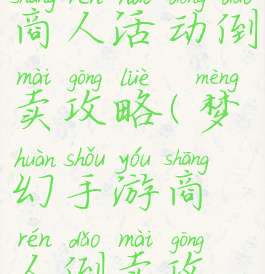 shāng rén huó dòng dǎo
商人活动倒
mài gōng lüè mèng
卖攻略(梦
huàn shǒu yóu shāng
幻手游商
rén dǎo mài gōng
人倒卖攻